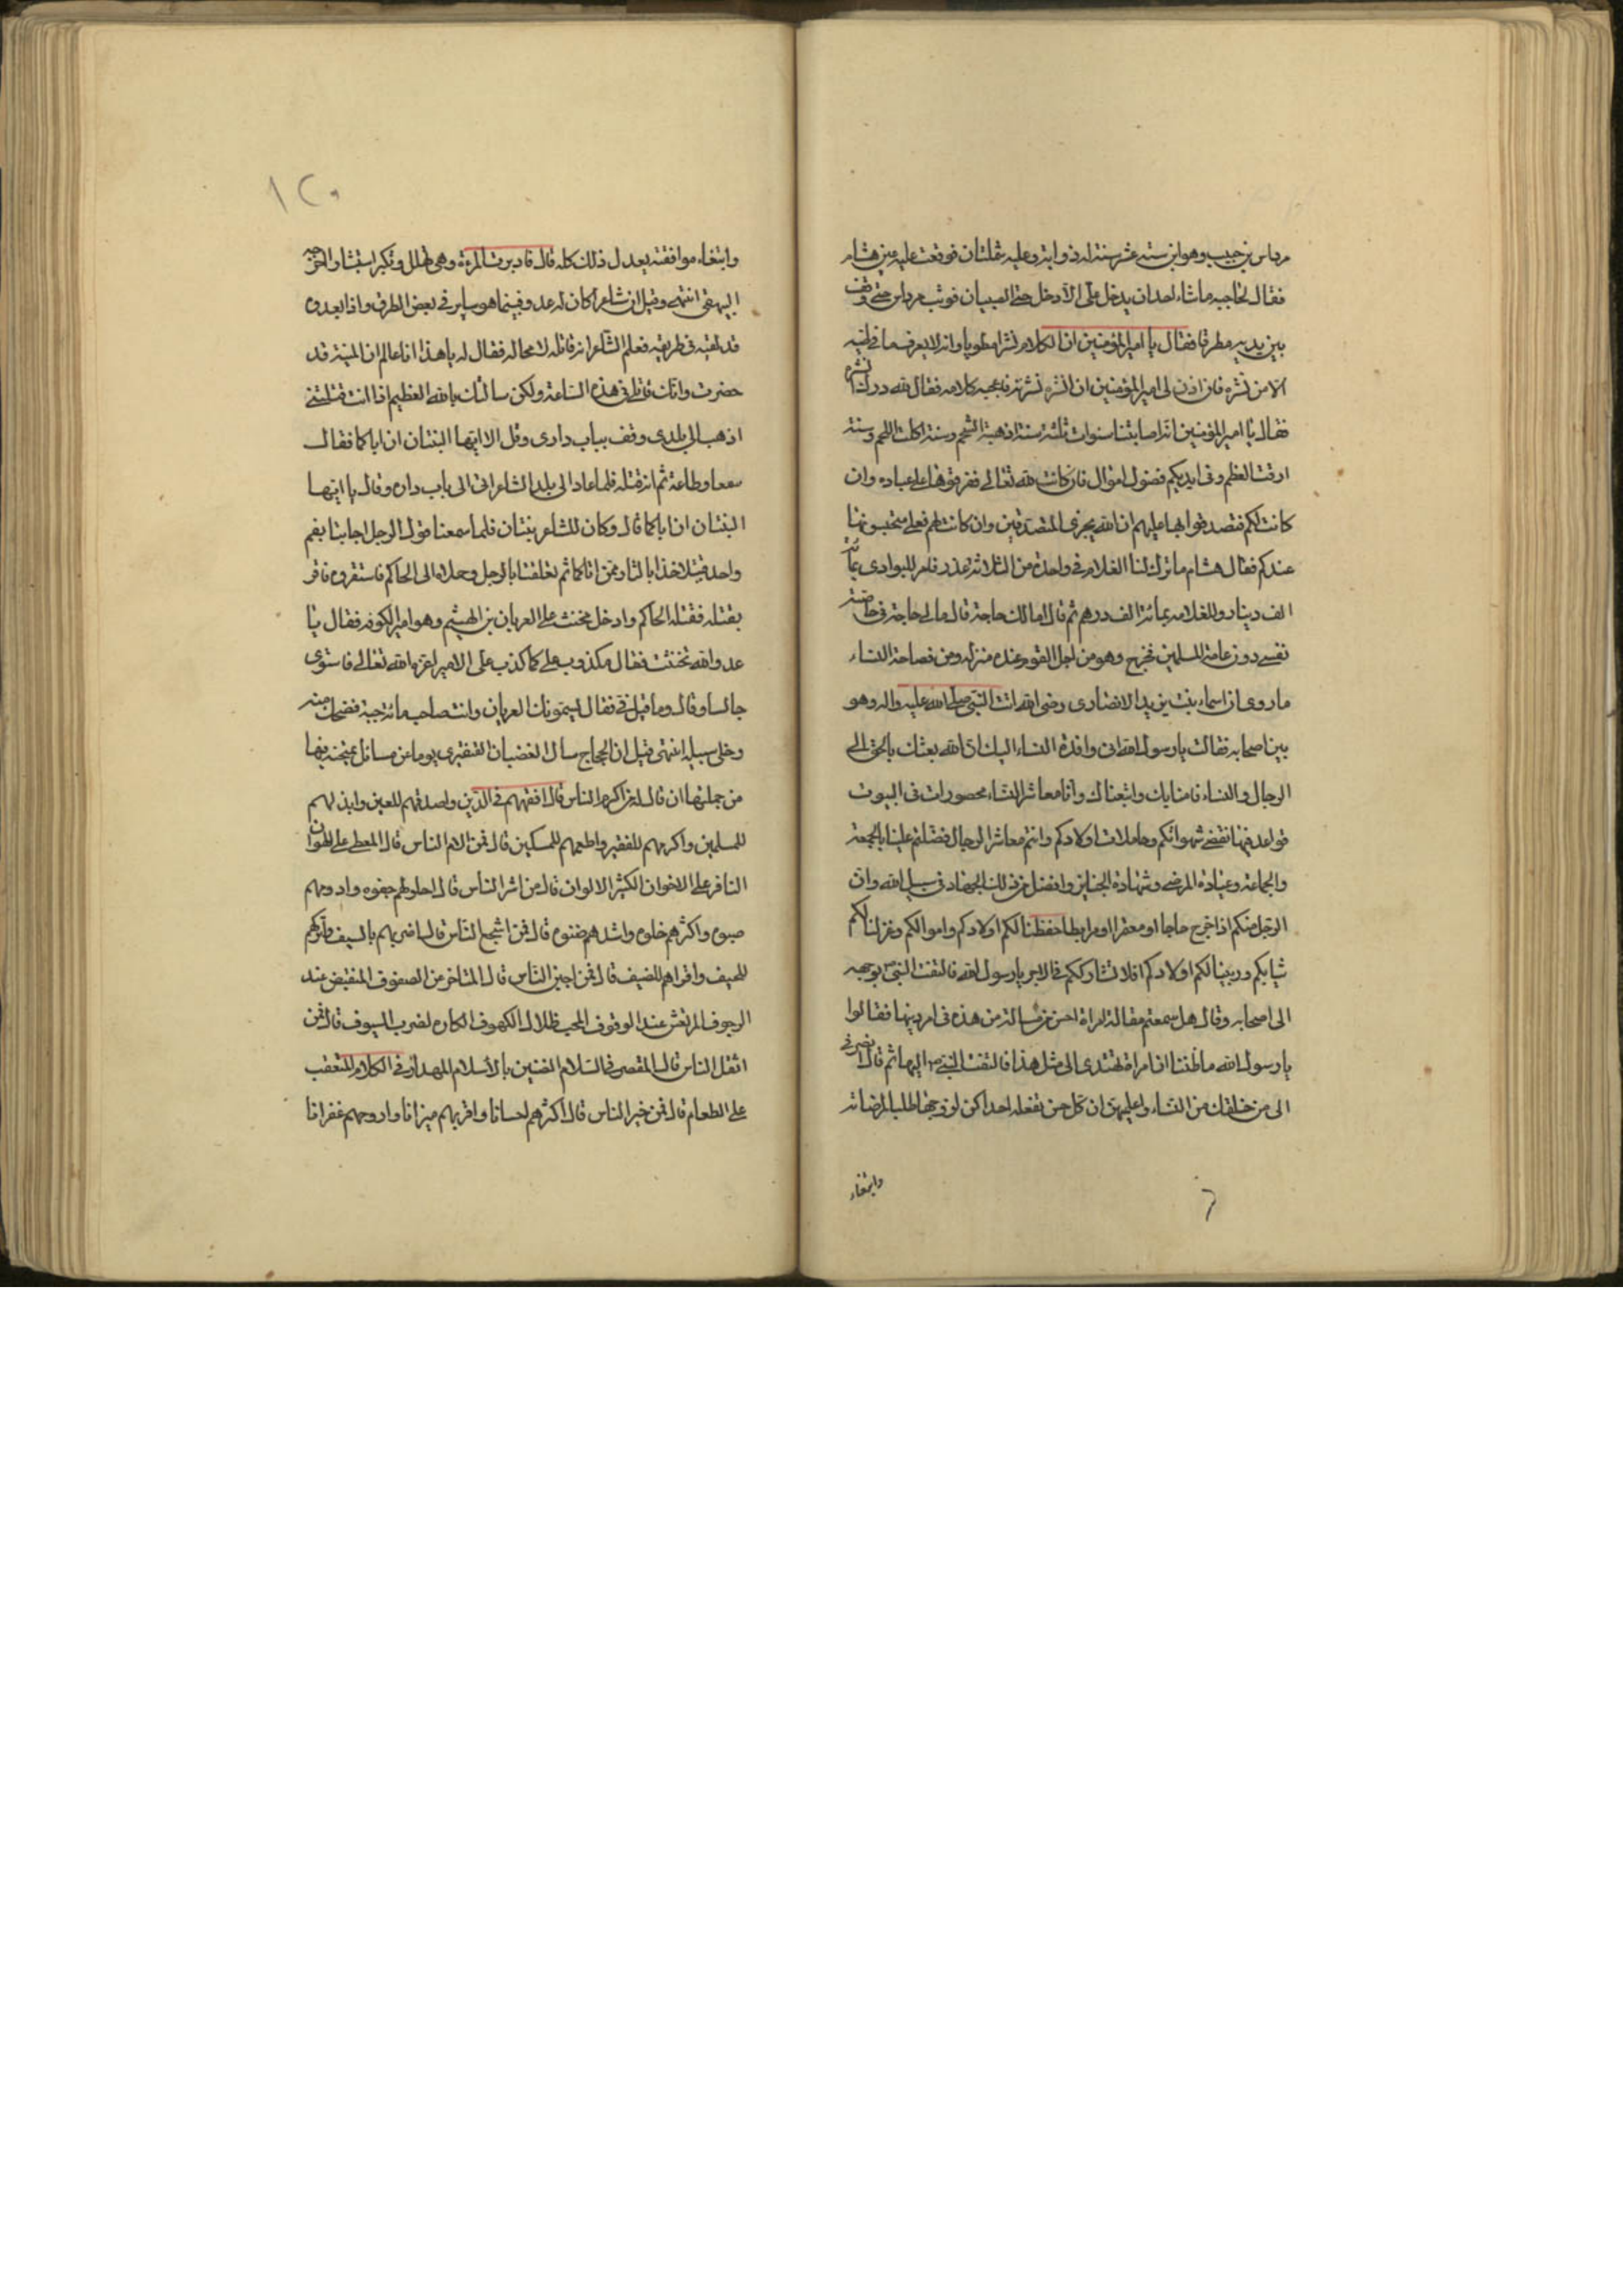 مرداس بن حبيب وهو ابن ستة عشر سنة له ذوابة وعليه شملتان فوقعت عليه عين هشام
فقال لحاجبه ما شاء احد ان يدخل على الا دخل حتى الصبيان فوثب مرداس حتى وقف
بين يديه مطرقا فقال يا امير المؤمنين ان للكلام نشرا مطويا وانه لا يعرف ما في طيه
الا من نشره فان اذن لى امير المؤمنين ان انشره نشرته فاعجبه كلامه فقال لله درك انشره
فقال يا امير المؤمنين انه اصابتنا سنوات ثلثة سنة اذهبت الشحم وسنة اكلت اللحم وسنة
ارقت العظم وفى ايديكم فضول اموال فان كانت لله تعالى ففرقوها على عباده وان
كانت لكم فتصدقوا بها عليهم ان الله يجزى المتصدقين وان كانت لهم فعلى م تحبسونها
عندكم فقال هشام ما ترك لنا الغلام في واحدة من الثلاثة عذر فامر للبوادى بمائة
الف دينار وللغلام بمائة الف درهم ثم قال اما لك حاجة قال مالى حاجة في خاصة
نفسى دون عامة المسلمين فخرج وهو من اجل القوم عنده منزلة ومن فصاحة النساء
ما روى ان اسماء بنت يزيد الانصارى رضى الله اتت النبى صلى الله عليه واله وهو
بين اصحابه فقالت يا رسول الله انى وافدة النساء اليك ان الله بعثك بالحق الى
الرجال والنساء فامنا بك واتبعناك وانا معاشر النساء محصورات فى البيوت
قواعد فيها نقضى شهواتكم وحاملات اولادكم وانتم معاشر الرجال فضلتم علينا بالجمعة
والجماعة وعيادة المرضى وشهادة الجنايز وافضل من ذلك الجهاد في سبيل الله وان
الرجل منكم اذا خرج حاجا او معتمرا او مرابطا حفظنا لكم اولادكم واموالكم وغزلنا لكم
ثيابكم وربينا لكم اولادكم افلا نشارككم في الاجر يا رسول الله فالتفت النبى ص بوجهه
الى اصحابه وقال هل سمعتم مقالة امراة احسن من مسالة من هذه فى امر دينها فقالوا
يا رسول الله ما ظننا ان امراة تهتدى الى مثل هذا فالتفت النبى ص اليها ثم قال انصرفى
الى من خلفك من النساء واعليهن ان كل حسن تفعله احداكن لزوجها طلبا لمرضاته
وابتغاء
١٢٥
وابتغاء موافقته يعدل ذلك كله قال فادبرت المرءة وهى تهلل وتكبر استبشارا اخرجه
البيهقى انتهى وقيل ان شاعرا كان له عدو فبينما هو ساير في بعض الطرق واذا بعدوه
قد لقيه فى طريقه فعلم الشاعر انه قاتله لا محالة فقال له يا هذا انا عالم ان المنية قد
حضرت وانك قاتلى في هذه الساعة ولكن سالتك بالله العظيم اذا انت قتلتنى
اذهب الى بلدى وقف بباب دارى وقل الا ايها البنتان ان اباكما فقال
سمعا وطاعة ثم انه قتله فلما عاد الى بلد الشاعر اتى الى باب داره وقال يا ايها
البنتان ان اباكما قال وكان للشاعر بنتان فلما سمعتا قول الرجل اجابتا بفم
واحد قتيلا خذا بالثار ممن اتاكما ثم تعلقتا بالرجل وحملاه الى الحاكم فاستقروه فاقر
بقتله فقتله الحاكم وادخل مخنث على العريان بن الهيثم وهو امير الكوفة فقال يا
عدو الله تخنثت فقال مكذوب على كما كذب على الامير اعزه الله تعالى فاستوى
جالسا وقال وما قيل في فقال يسمونك العريان وانت صاحب مائة جبة فضحك منه
وخلى سبيله انتهى قيل ان الحجاج سال الغضبان القبعثرى يوما عن مسائل يمتحنه فيها
من جملتها ان قال له من اكرم الناس قال افقههم في الدين واصدقهم لليمين وابذلهم
للمسلمين واكرمهم للفقير واطعمهم للمسكين قال فمن الام الناس قال المعطى على الهوان
الناقر على الاخوان الكثير الالوان قال من اشر الناس قال اطولهم جفوه وادومهم
صبوه واكثرهم خلوه واشدهم قسوه قال فمن اشجع الناس قال اضربهم بالسيف واتركهم
للحيف واقراهم للضيف قال فمن اجبن الناس قال المتاخر عن الصفوف المنقبض عند
الزحوف المرتعش عند الوقوف المحب ظلال الكهوف الكاره لضرب السيوف قال فمن
اثقل الناس قال المقصر في السلام الضنين بالاسلام المهذار في الكلام المتعقب
على الطعام قال فمن خير الناس قال اكثرهم احسانا واقربهم ميزانا وادومهم غفرانا